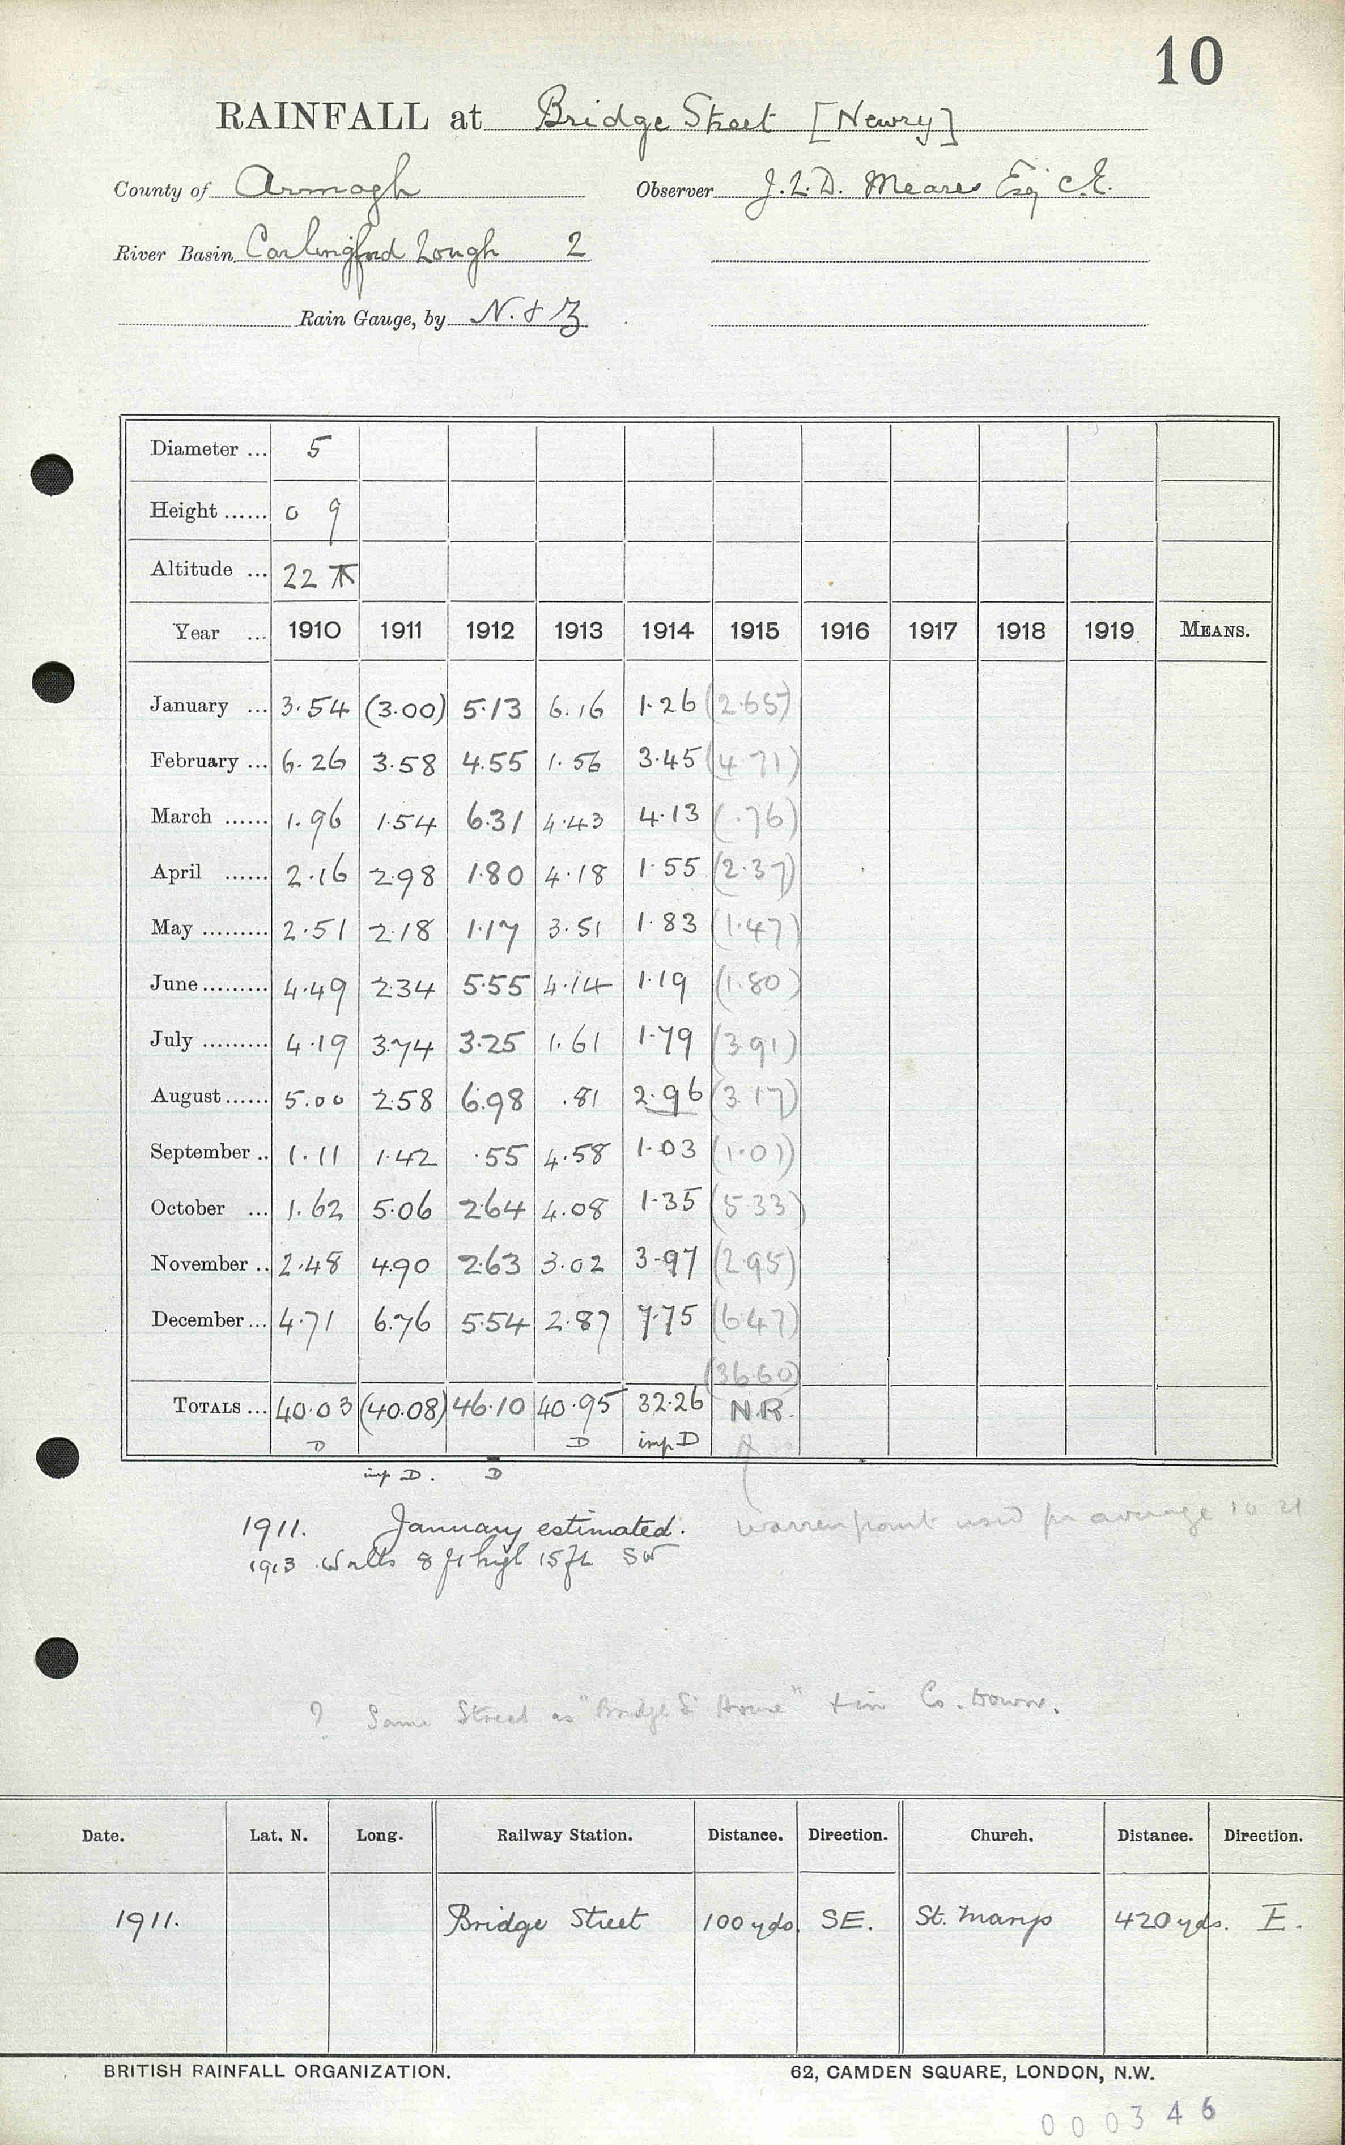 10
RAINFALL at Bridge Street [Newry]
County of Armagh Observer J.L.D. Meares Esq C.E.
River Basin Carlingford Lough 2
Rain Gauge, by N. & Z
Diameter ... 5
Height ...... 0 9
Altitude ... 22
Year ... 1910 1911 1912 1913 1914 1915 1916 1917 1918 1919 MEANS.
January ... 3.54 (3.00) 5.13 6.16 1.26 (2.65)
February ... 6.26 3.58 4.55 1.56 3.45 (4.71)
March ...... 1.96 1.54 6.31 4.43 4.13 (.76)
April ...... 2.16 2.98 1.80 4.18 1.55 (2.37)
May ......... 2.51 2.18 1.17 3.51 1.83 (1.47)
June ......... 4.49 2.34 5.55 4.14 1.19 (1.80)
July ......... 4.19 3.74 3.25 1.61 1.79 (3.91)
August ...... 5.00 2.58 6.98 .81 2.96 (3.17)
September .. 1.11 1.42 .55 4.58 1.03 (1.01)
October ... 1.62 5.06 2.64 4.08 1.35 (5.33)
November .. 2.48 4.90 2.63 3.02 3.97 (2.95)
December ... 4.71 6.76 5.54 2.87 7.75 (6.47)
(36.60)
TOTALS ... 40.03 (40.08) 46.10 40.95 32.26 N.R.
D D imp D
imp D. D
1911. January estimated. Warrenpoint used for average 10 21
1913 Walls 8 ft high 15 ft SW
? Same Street as "Bridge St House" in Co. Down.
Date. Lat. N. Long. Railway Station. Distance. Direction. Church. Distance. Direction.
1911. Bridge Street 100 yds. SE. St. Marys 420 yds. E.
BRITISH RAINFALL ORGANIZATION. 62, CAMDEN SQUARE, LONDON, N.W.
000346